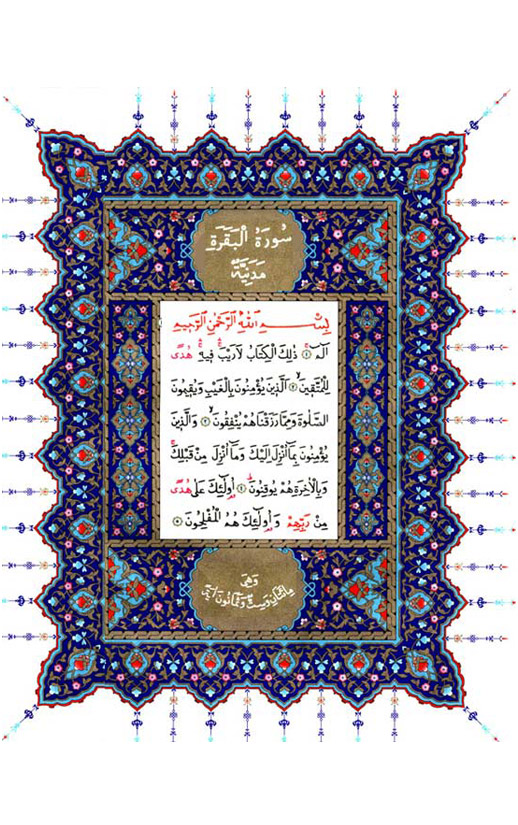 سُورَةُ الْبَقَرَةِ
مَدَنِيَّةٌ
بِسْمِ اللّٰهِ الرَّحْمٰنِ الرَّحِيمِ
الٓمٓ ۚ ﴿١﴾ ذٰلِكَ الْكِتَابُ لَا رَيْبَ ۚ فِيهِ ۚ هُدًى
لِلْمُتَّقِينَ ۙ ﴿٢﴾ اَلَّذِينَ يُؤْمِنُونَ بِالْغَيْبِ وَيُقِيمُونَ
الصَّلٰوةَ وَمِمَّا رَزَقْنَاهُمْ يُنْفِقُونَ ۙ ﴿٣﴾ وَالَّذِينَ
يُؤْمِنُونَ بِمَٓا اُنْزِلَ اِلَيْكَ وَمَٓا اُنْزِلَ مِنْ قَبْلِكَ ۚ
وَبِالْاٰخِرَةِ هُمْ يُوقِنُونَ ۜ ﴿٤﴾ اُولٰٓئِكَ عَلٰى هُدًى
مِنْ رَبِّهِمْ وَاُولٰٓئِكَ هُمُ الْمُفْلِحُونَ ﴿٥﴾
وَهِيَ
مِائَتَانِ وَسِتٌّ وَثَمَانُونَ اٰيَةً